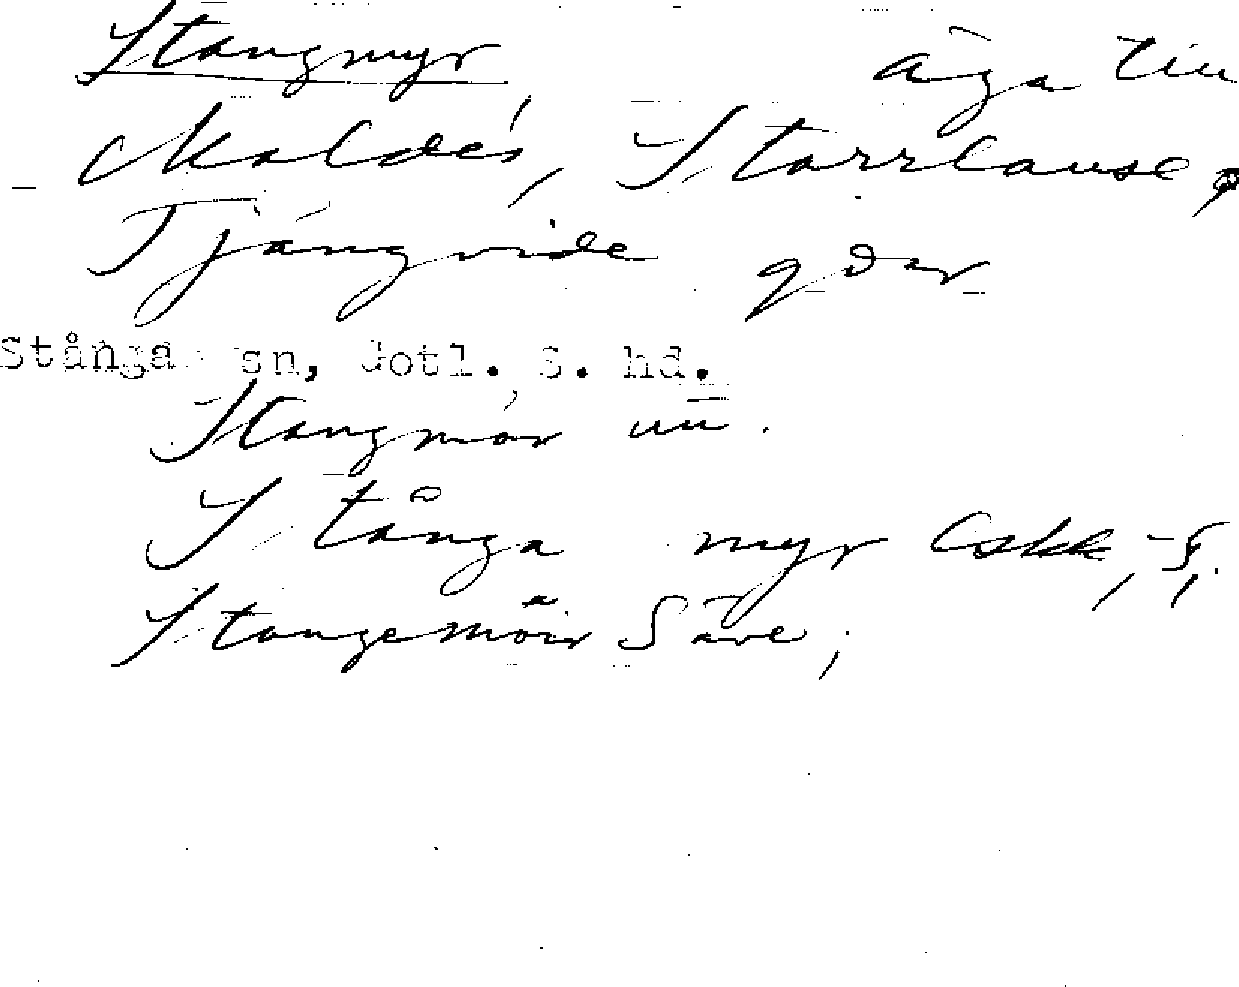 Stangmyr äga till
Maldes, Starrlause,
Tjängvide gdar
Stånga sn, Gotl. S. hd.
Stangmör
Stånga myr Eskk,
Stangemöir Säve,